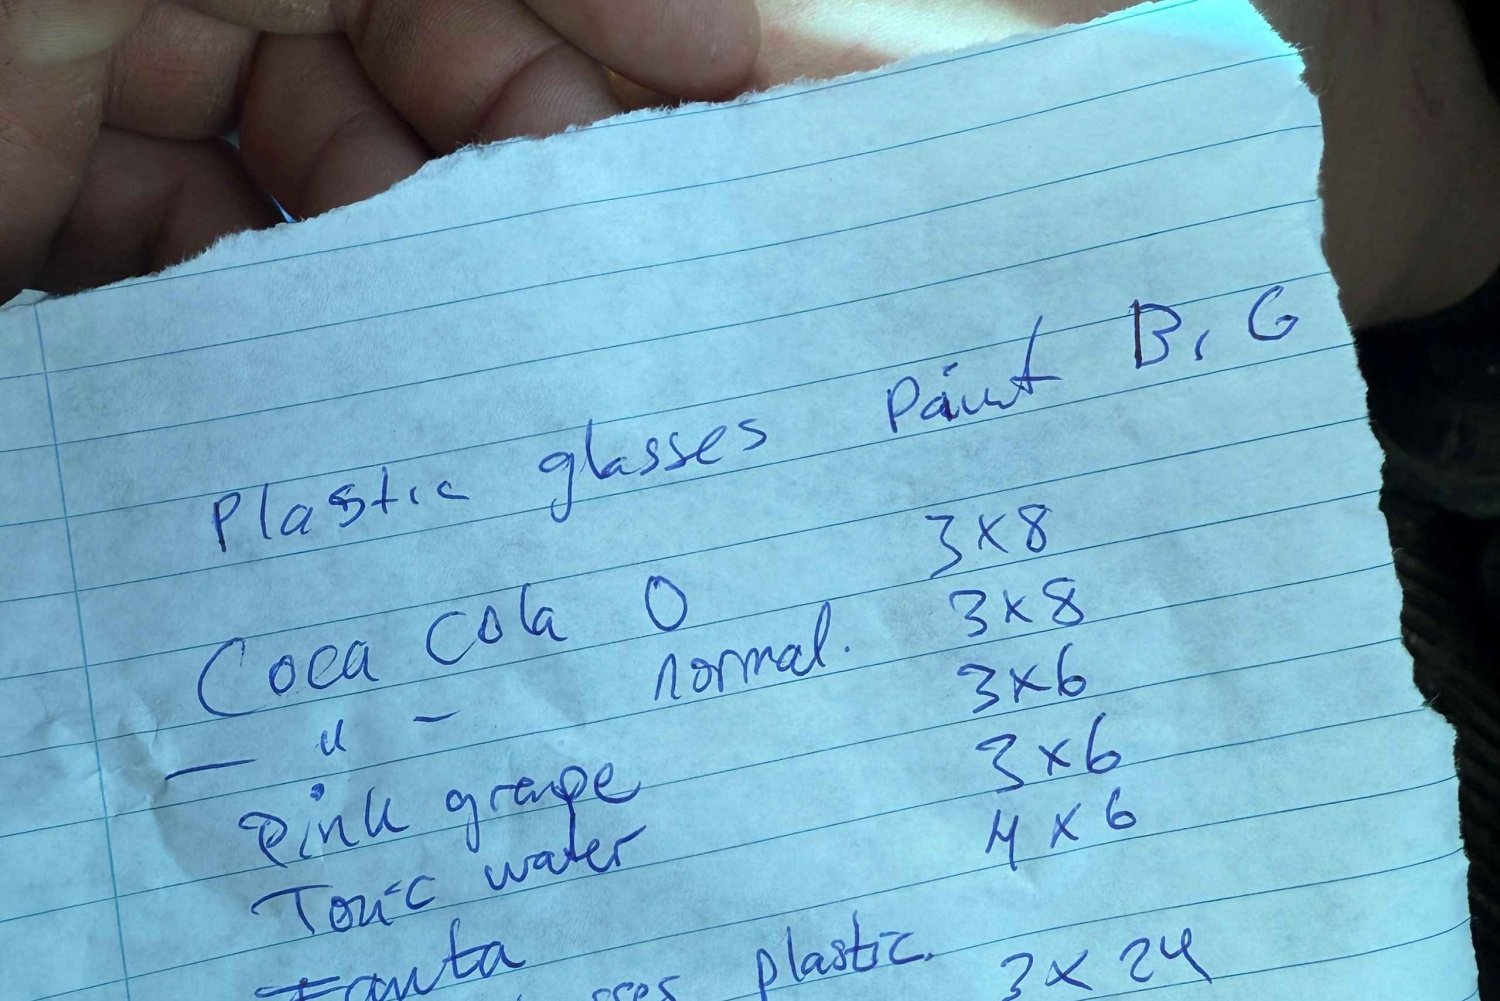 Plastic glasses Paint B, G
Coca Cola 0 3x8
— " — normal. 3x8
Pink grape 3x6
Tonic water 3x6
Fanta 4x6
plastic. 3x24